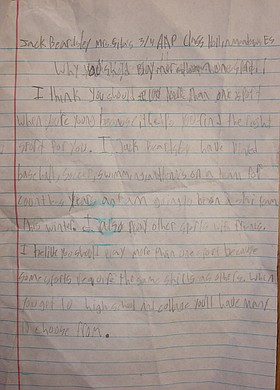 Jack Beardsley Mrs. 3/4 AAP Class
Why you should play more than one sport!
I think you should play more than one sport
when your young because it helps you find the right
sport for you. I Jack Beardsley have played
baseball, soccer, swimming, and on a team. For
years and I am going to be on a team
this winter. I also play other sports with friends.
I belive you should play more than one sport because
some sports require the same skills as others. When
you get to high school and college you'll have many
to choose from.